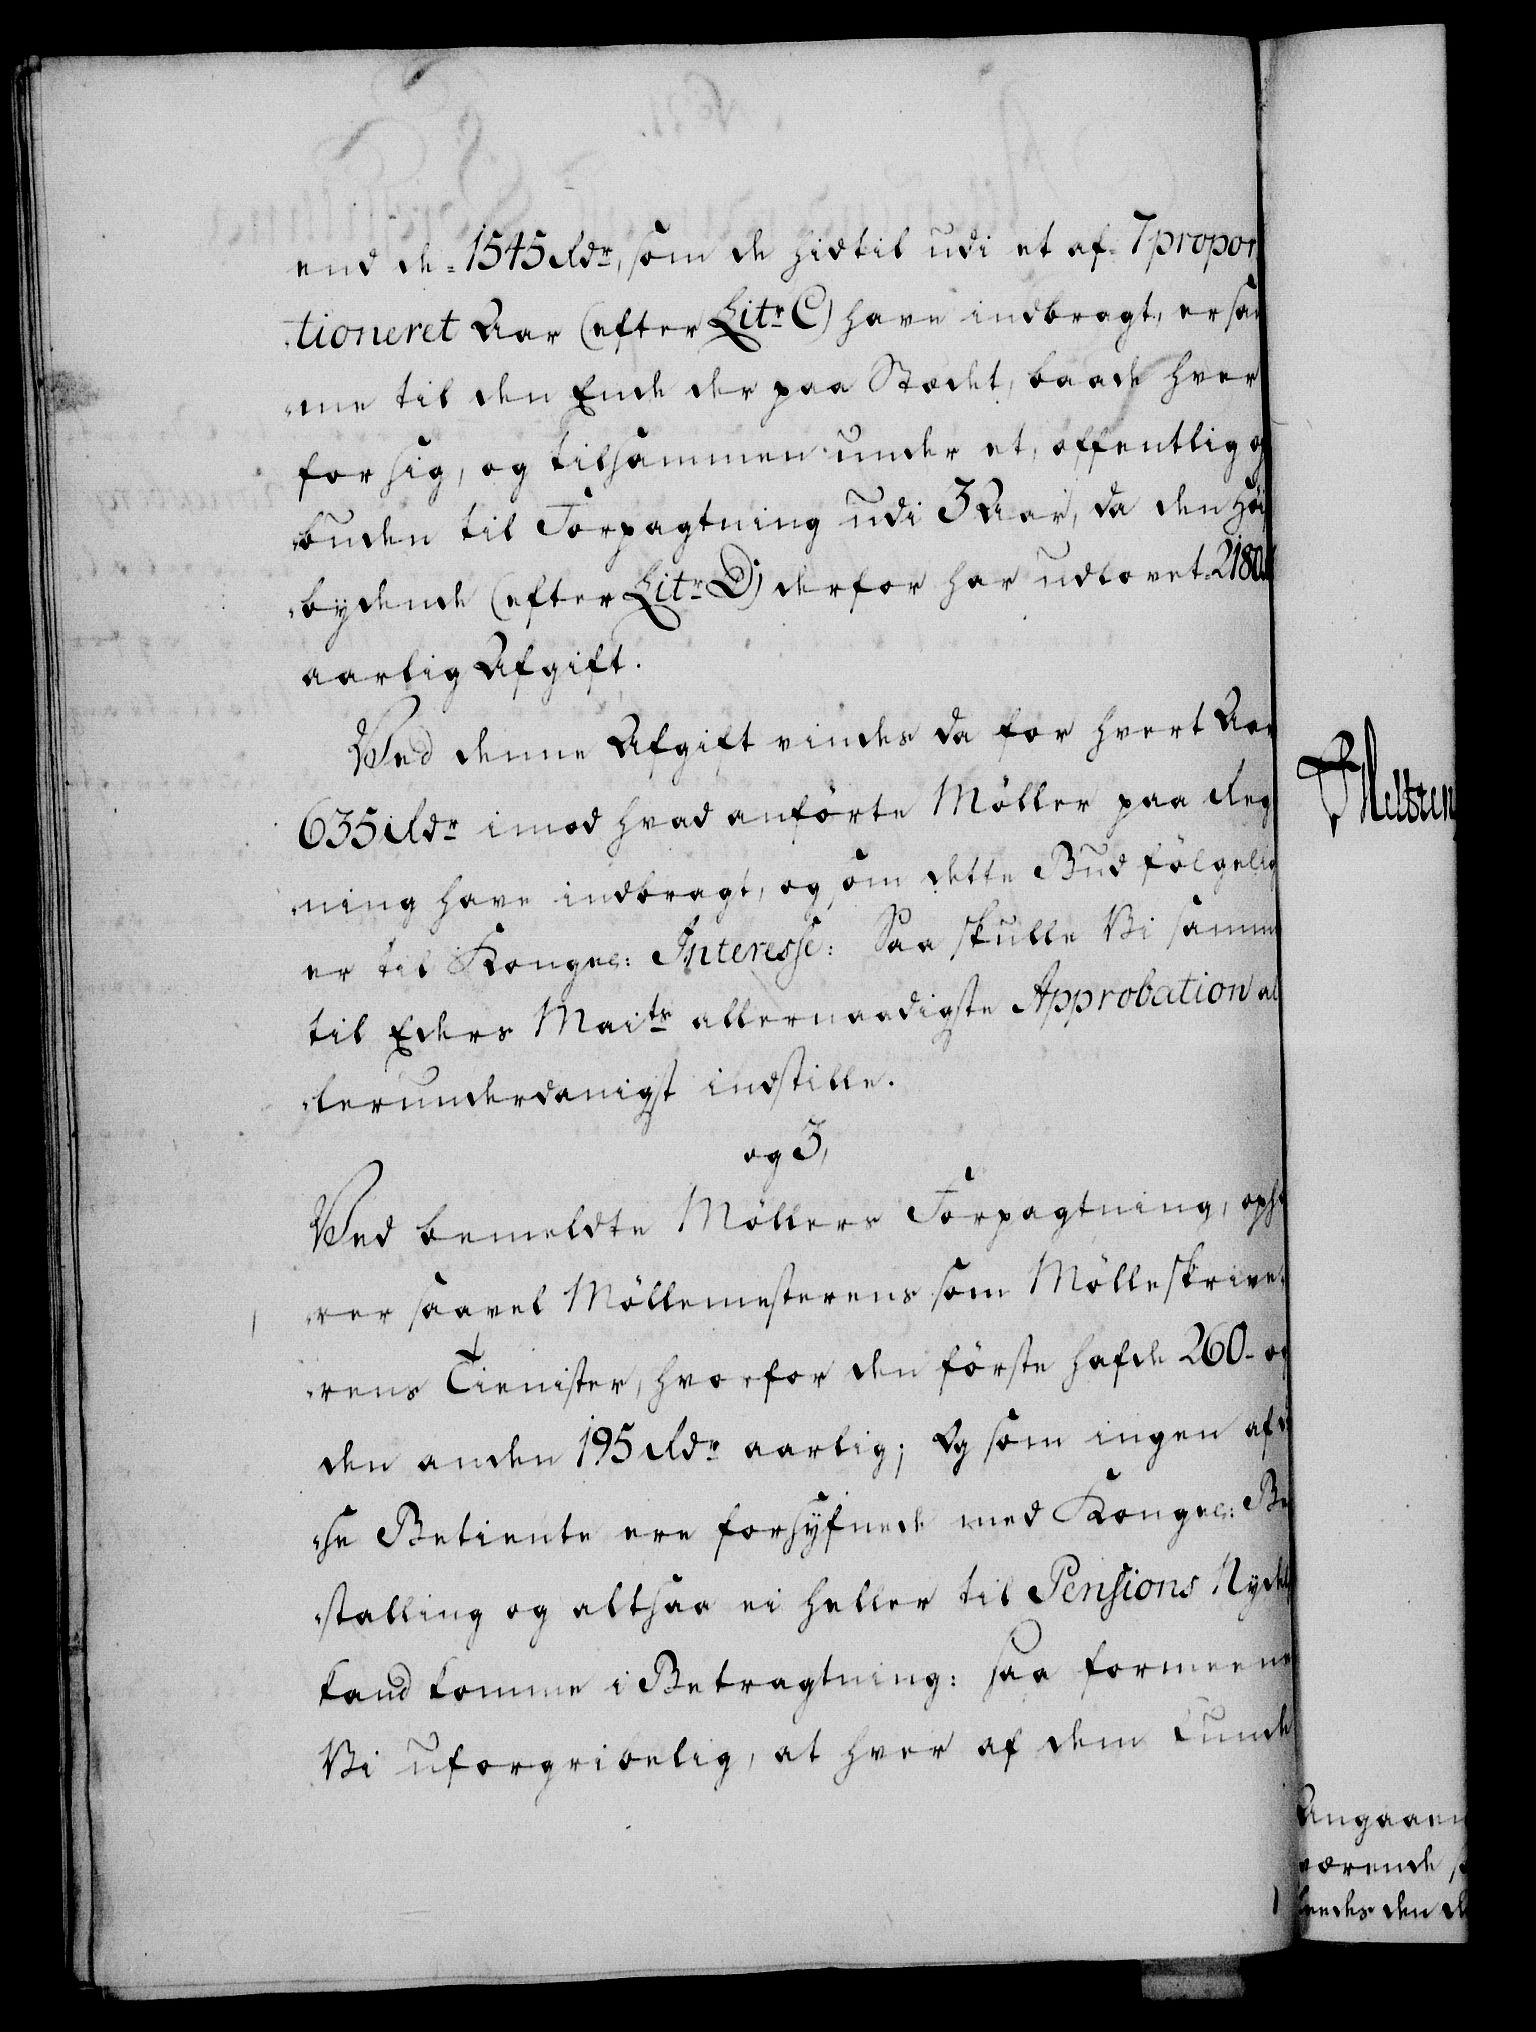 end de 1545 Rdr, som de hidtil udi et af 7 propor
tioneret Aar (efter Litr: C) have indbragt, er sam
me til den Ende der paa Stædet, baade hver
for sig, og tilsammen under et, offentlig op
buden til Forpagtning udi 3 Aar, da den høi
bydende (efter Litr: D) derfor har udlovet 2180
aarlig Afgift.
Ved denne Afgift vindes da for hvert Aar
635 Rdr imod hvad anförte Möller paa Reg
ning have indbragt, og som dette Bud fölgelig
er til Kongel: Interesse: Saa skulle Vi samme
til Eders Maits allernaadigste Approbation al
lerunderdanigst indstille.
og 3,
Ved bemeldte Möllers Forpagtning, ophö
rer saavel Möllemesterens som Mölleskrive
rens Tienister, hvorfor den förste hafde 260 og
den anden 195 Rdr aarlig; Og som ingen af di
se Betiente ere forsÿfnede med Kongel: Be
stalling og altsaa ei heller til Pensions Nydel
kand komme i Betragtning: saa formeene
Vi uforgribelig, at hver af dem kunde
Angaaen
værende
des den